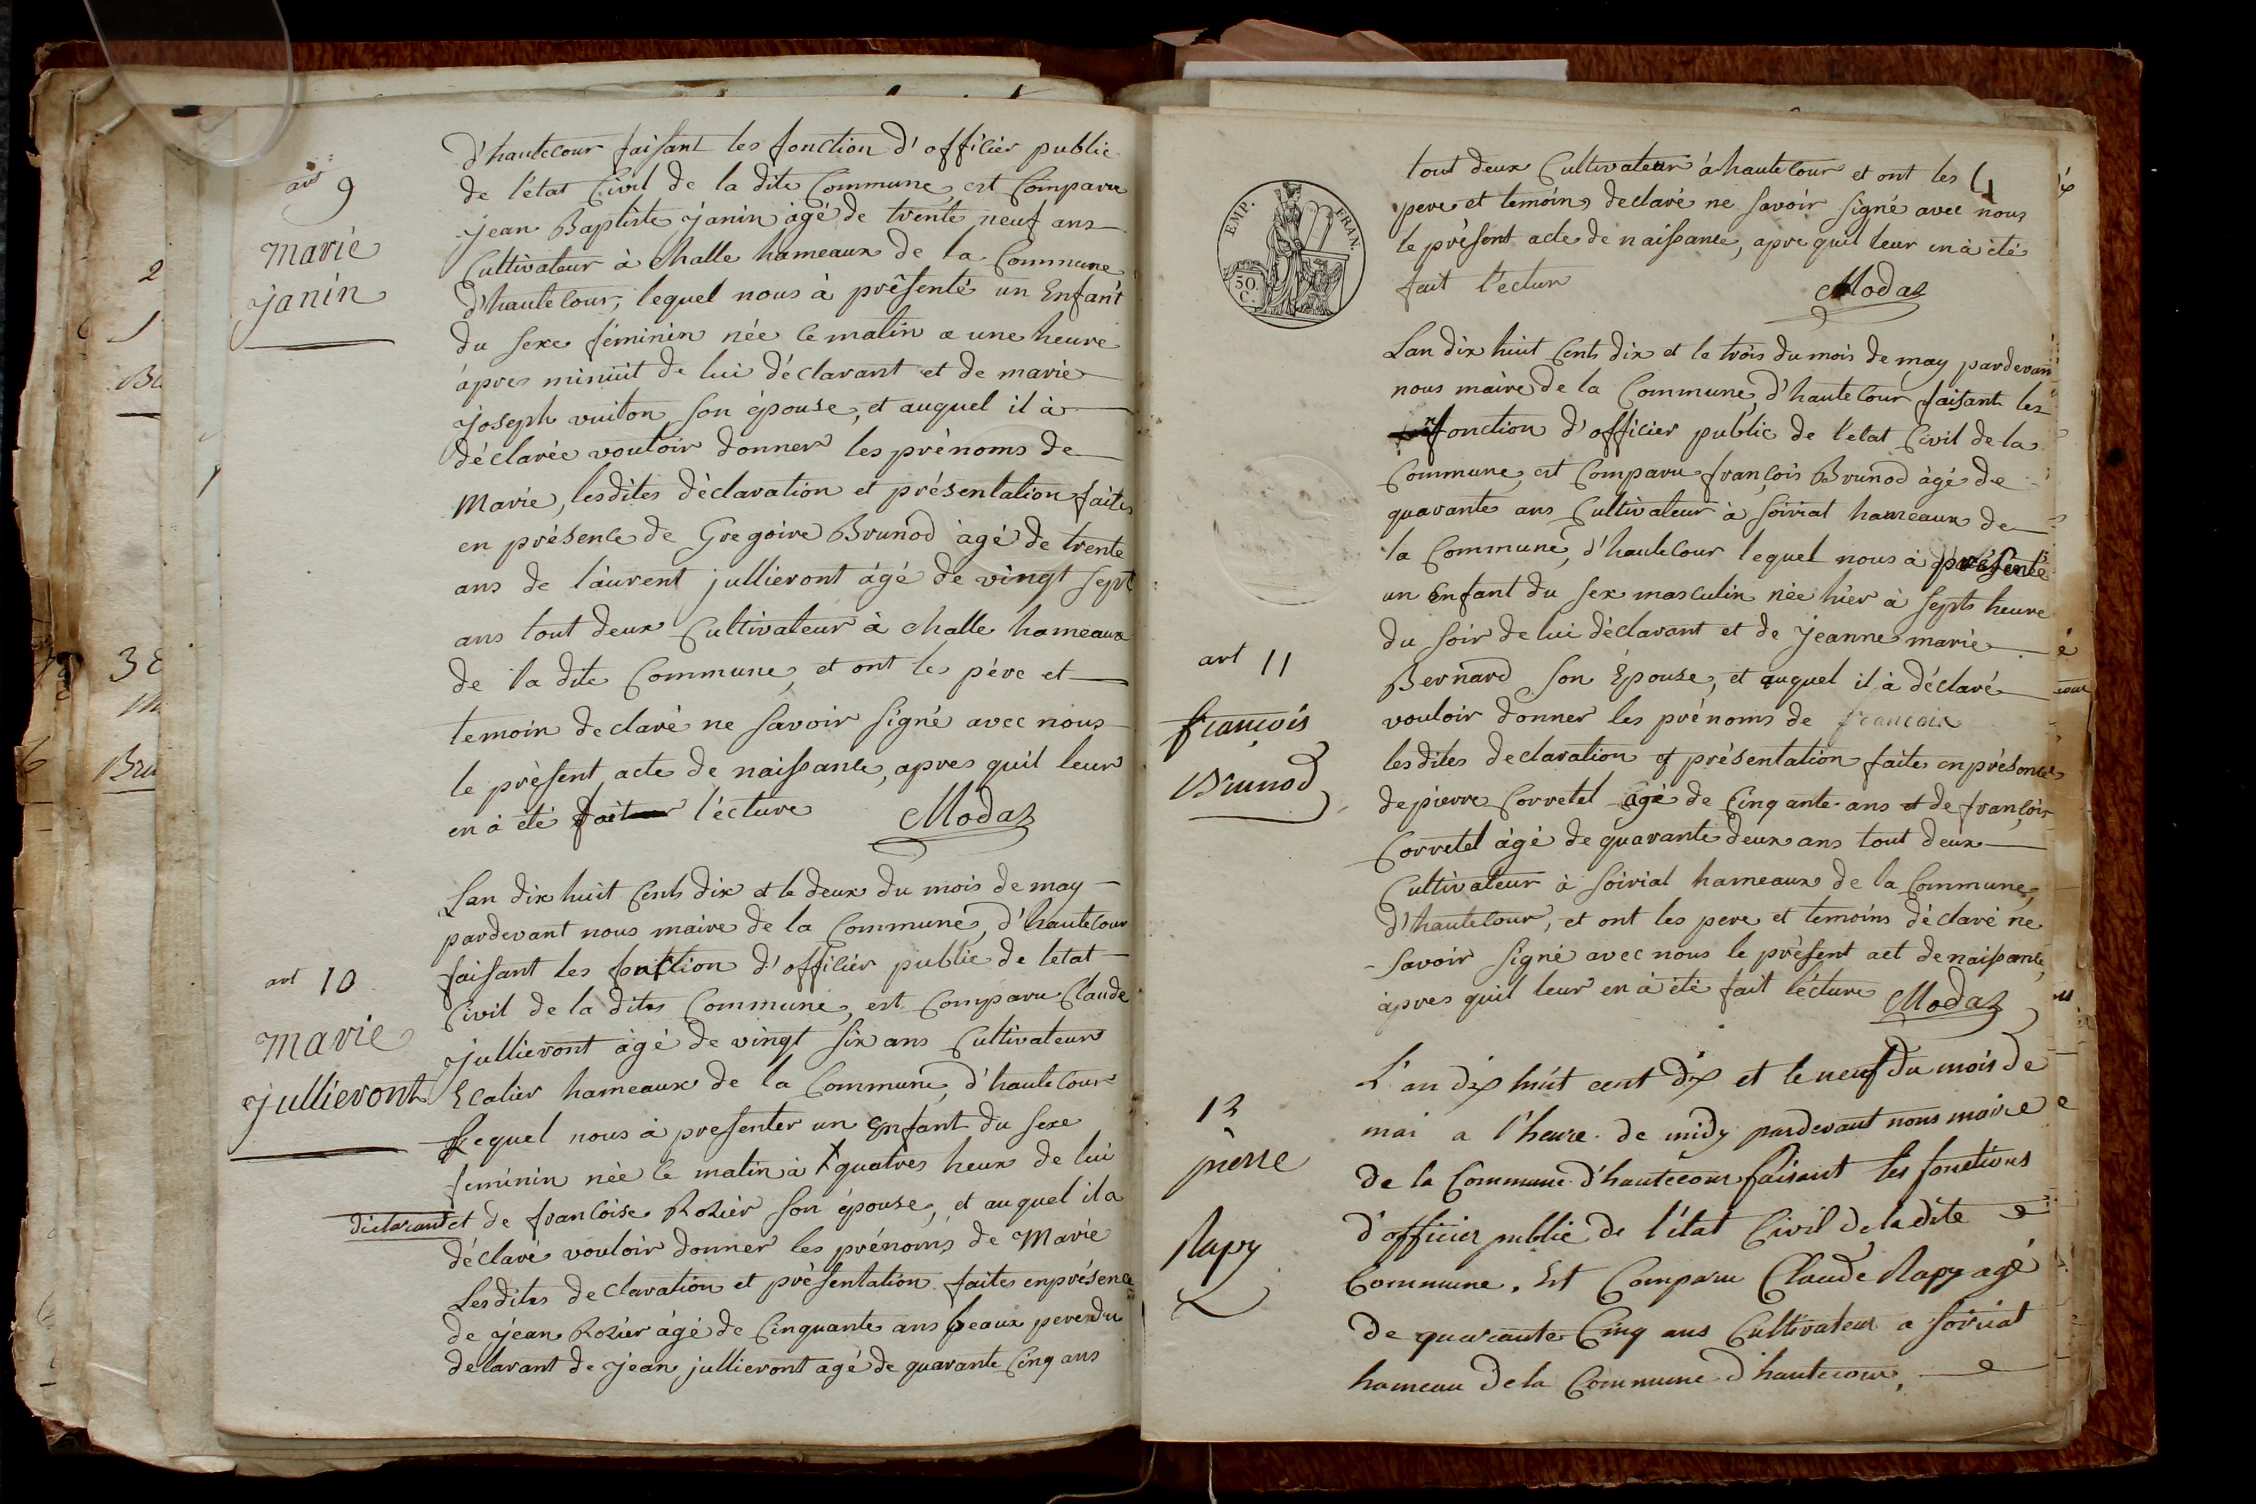 art 9
Marie
Janin
d'hautecour faisant les fonction d'officier public
de l'état Civil de la dite Commune, est Comparu
jean Baptiste Janin àgé de trente neuf ans
Cultivateur à Challe hameaux de la Commune
d'hautecour, lequel nous à présenté un Enfant
du sexe féminin née ce matin a une heure
àpres minuit de lui déclarant et de marie
joseph vuiton son épouse, et auquel il à
déclarée vouloir donner les prénoms de
Marie, lesdites déclaration et présentation faites
en présence de Gregoire Brunod àgé de trente
ans de làurent jullieront àgé de vingt sept
ans tout deux Cultivateur à Challe hameaux
de la dite Commune, et ont les père et
temoin declaré ne Savoir signé avec nous
le présent acte de naissance, apres quil leur
en à été fait l'écture Modaz
art 10
Marie
Jullieront
Lan dix huit Cents dix et le deux du mois de may
pardevant nous maire de la Commune, d'hautecour
faisant les fonction d'officier public de letat
Civil de la dites Commune, est Comparu Claude
Jullieront àgé de vingt six ans Cultivateur
Ecalier hameaux de la Commune, d'hautecour
Lequel nous à presenter un enfant du sexe
feminin née ce matin à quatres heur de lui
déclarant et de francoise Rozier son épouse, et auquel il a
déclaré vouloir donner les prénoms de Marie
Lesdites declaration et présentation faites enprésence
de jean Rozier àgé de Cinquante ans beaux pere du
delarant de jean jullieront agé de quarante Cinq ans
EMP. FRAN.
50.
C.
tout deux Cultivateur à hautecour et ont les
pere et temoins declaré ne savoir signé avec nous
le présent acte de naissance, apre quil leur en à été
fait l'éctur Modaz
art 11
françois
Brunod
Lan dix huit Cents dix et le trois du mois de may pardevan
nous maire de la Commune, d'hautecour faisant les
fonction d'officier public de l'état Civil de la
Commune, est Comparu françois Brunod àgé de
quarante ans Cultivateur à soiriat hameaux de
la Commune, d'hautecour lequel nous à présenté
un enfant du sex masculin née hier à septs heure
du soir de lui déclarant et de jeanne marie
Bernard son Epouse, et auquel il à déclaré
vouloir donner les prénoms de francois
lesdites declaration et présentation faites enprésence
de pierre Corretel agé de Cinqante ans et de françois
Corretel àgé de quarante deux ans tout deux
Cultivateur à soiriat hameaux de la Commune,
d'hautecour, et ont les pere et temoins déclaré ne
savoir signé avec nous le présent act de naissance,
àpres quil leur en à été fait lécture Modaz
12
pierre
Rapy
L'an dix huit cent dix et le neuf du mois de
mai a l'heure de midy pardevant nous maire
de la Commune d'hautecour faisant les fonctions
d'officier public de l'état Civil de la dite
Commune. Est Comparu Claude Rapy agé
de quarante Cinq ans Cultivateur a soiriat
hameau de la Commune d'hautecour,